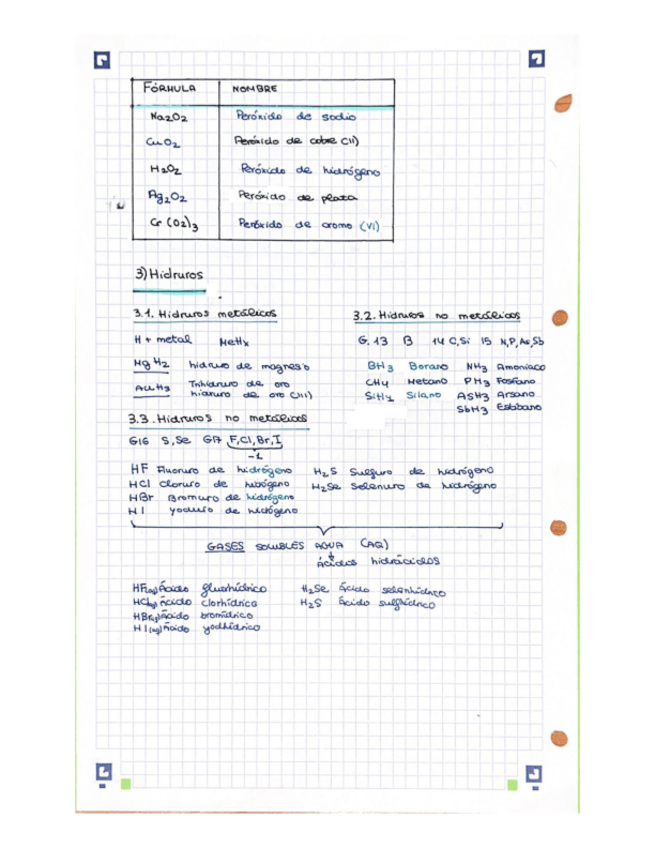 FÓRMULA NOMBRE
Na2O2 Peróxido de sodio
CuO2 Peróxido de cobre (II)
H2O2 Peróxido de hidrógeno
Ag2O2 Peróxido de plata
Cr (O2)3 Peróxido de cromo (VI)
3) Hidruros
3.1. Hidruros metálicos
H + metal MeHx
MgH2 hidruro de magnesio
AuH3 Trihidruro de oro
hidruro de oro (III)
3.2. Hidruros no metálicos
G. 13 B 14 C, Si 15 N, P, As, Sb
BH3 Borano NH3 Amoniaco
CH4 Metano PH3 Fosfano
SiH4 Silano AsH3 Arsano
SbH3 Estibano
3.3. Hidruros no metálicos
G16 S, Se G17 F, Cl, Br, I
-1
HF Fluoruro de hidrógeno H2S Sulfuro de hidrógeno
HCl Cloruro de hidrógeno H2Se Selenuro de hidrógeno
HBr Bromuro de hidrógeno
HI yoduro de hidrógeno
GASES SOLUBLES AGUA (AQ)
ácidos hidrácidos
HF(aq) Ácido fluorhídrico H2Se ácido selenhídrico
HCl(aq) Ácido clorhídrico H2S ácido sulfhídrico
HBr(aq) Ácido bromídrico
HI(aq) Ácido yodhídrico